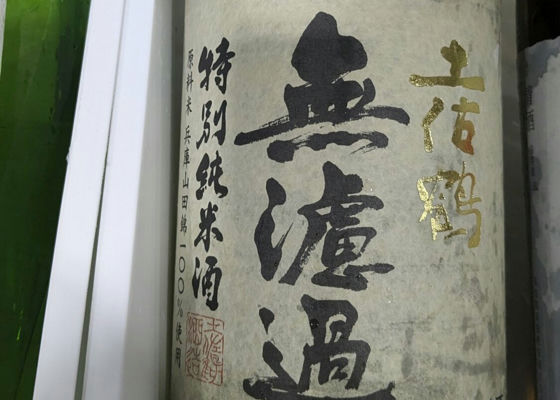 土佐鶴
無濾過
特別純米酒
原料米 兵庫山田錦一〇〇%使用